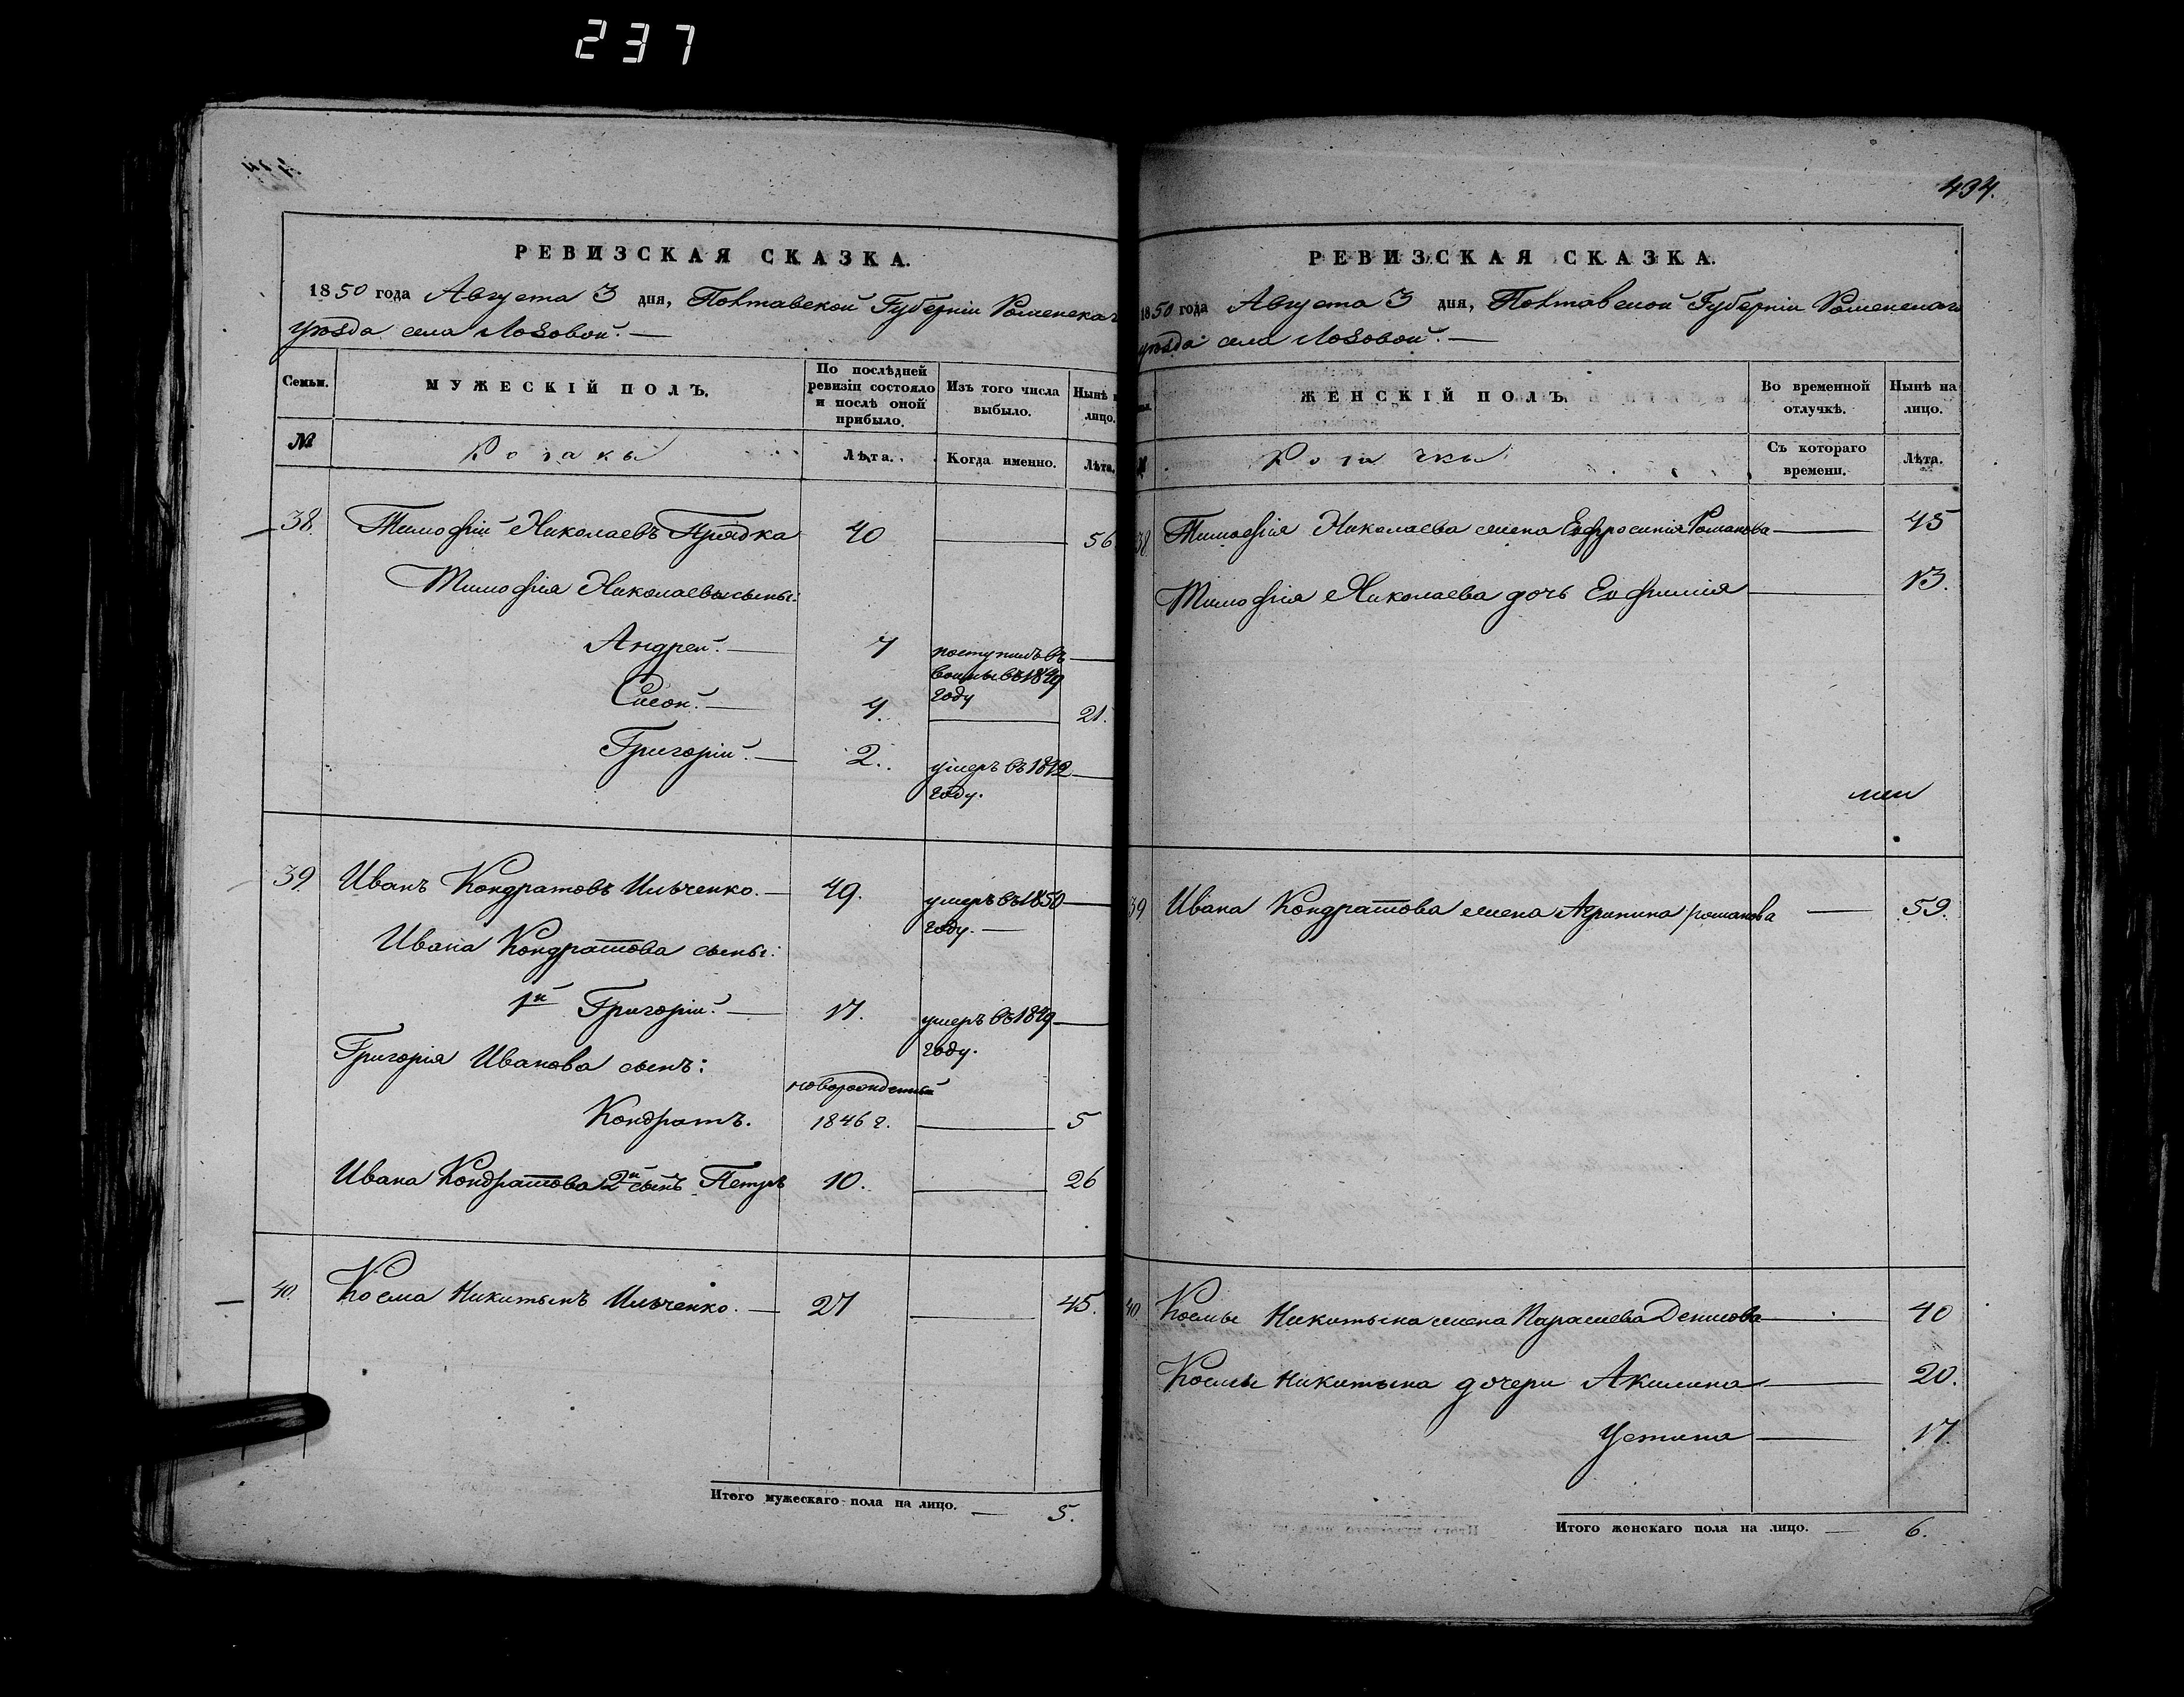 237
РЕВИЗСКАЯ СКАЗКА.
1850 года Августа 3 дня, Полтавской Губерніи Роменскаг
уѣзда села Лозовой. —
Семьи.
МУЖЕСКІЙ ПОЛЪ.
По послѣдней ревизіи состояло и послѣ оной прибыло.
Изъ того числа выбыло.
Нынѣ н лицо.
№
Козаки
Лѣта.
Когда именно.
Лѣта.
38. Тимофій Николаевъ Прядка 40 — 56
Тимофія Николаева сыны:
Андрей. — 7 поступилъ въ
воины въ 1849
году
Сисой. — 4. — 21.
Григорій. — 2. умеръ въ 1842
году.
39 Иванъ Кондратовъ Ильченко. — 49. умеръ въ 1850
году. —
Ивана Кондратова сыны:
1й Григорій. — 17. умеръ въ 1849
году.
Григорія Иванова сынъ:
новорожденный
Кондратъ. 1846 г. — 5
Ивана Кондратова 2й сынъ Петръ 10. — 26
40. Косма Никитынъ Ильченко. — 27 — 45.
Итого мужескаго пола на лицо. — 5.
434.
РЕВИЗСКАЯ СКАЗКА.
1850 года Августа 3 дня, Полтавской Губерніи Роменскаго
уѣзда села Лозовой. —
ЖЕНСКІЙ ПОЛЪ.
Во временной отлучкѣ.
Нынѣ на лицо.
Козачки
Съ котораго времени.
Лѣта.
38. Тимофія Николаева жена Евфросинія Романова — 45
Тимофія Николаева дочь Евфимія — 13.
39 Ивана Кондратова жена Агрипина Романова — 59.
40. Космы Никитына жена Параскева Денисова — 40
Космы Никитына дочери Акилина — 20.
Устина — 17.
Итого женскаго пола на лицо. — 6.